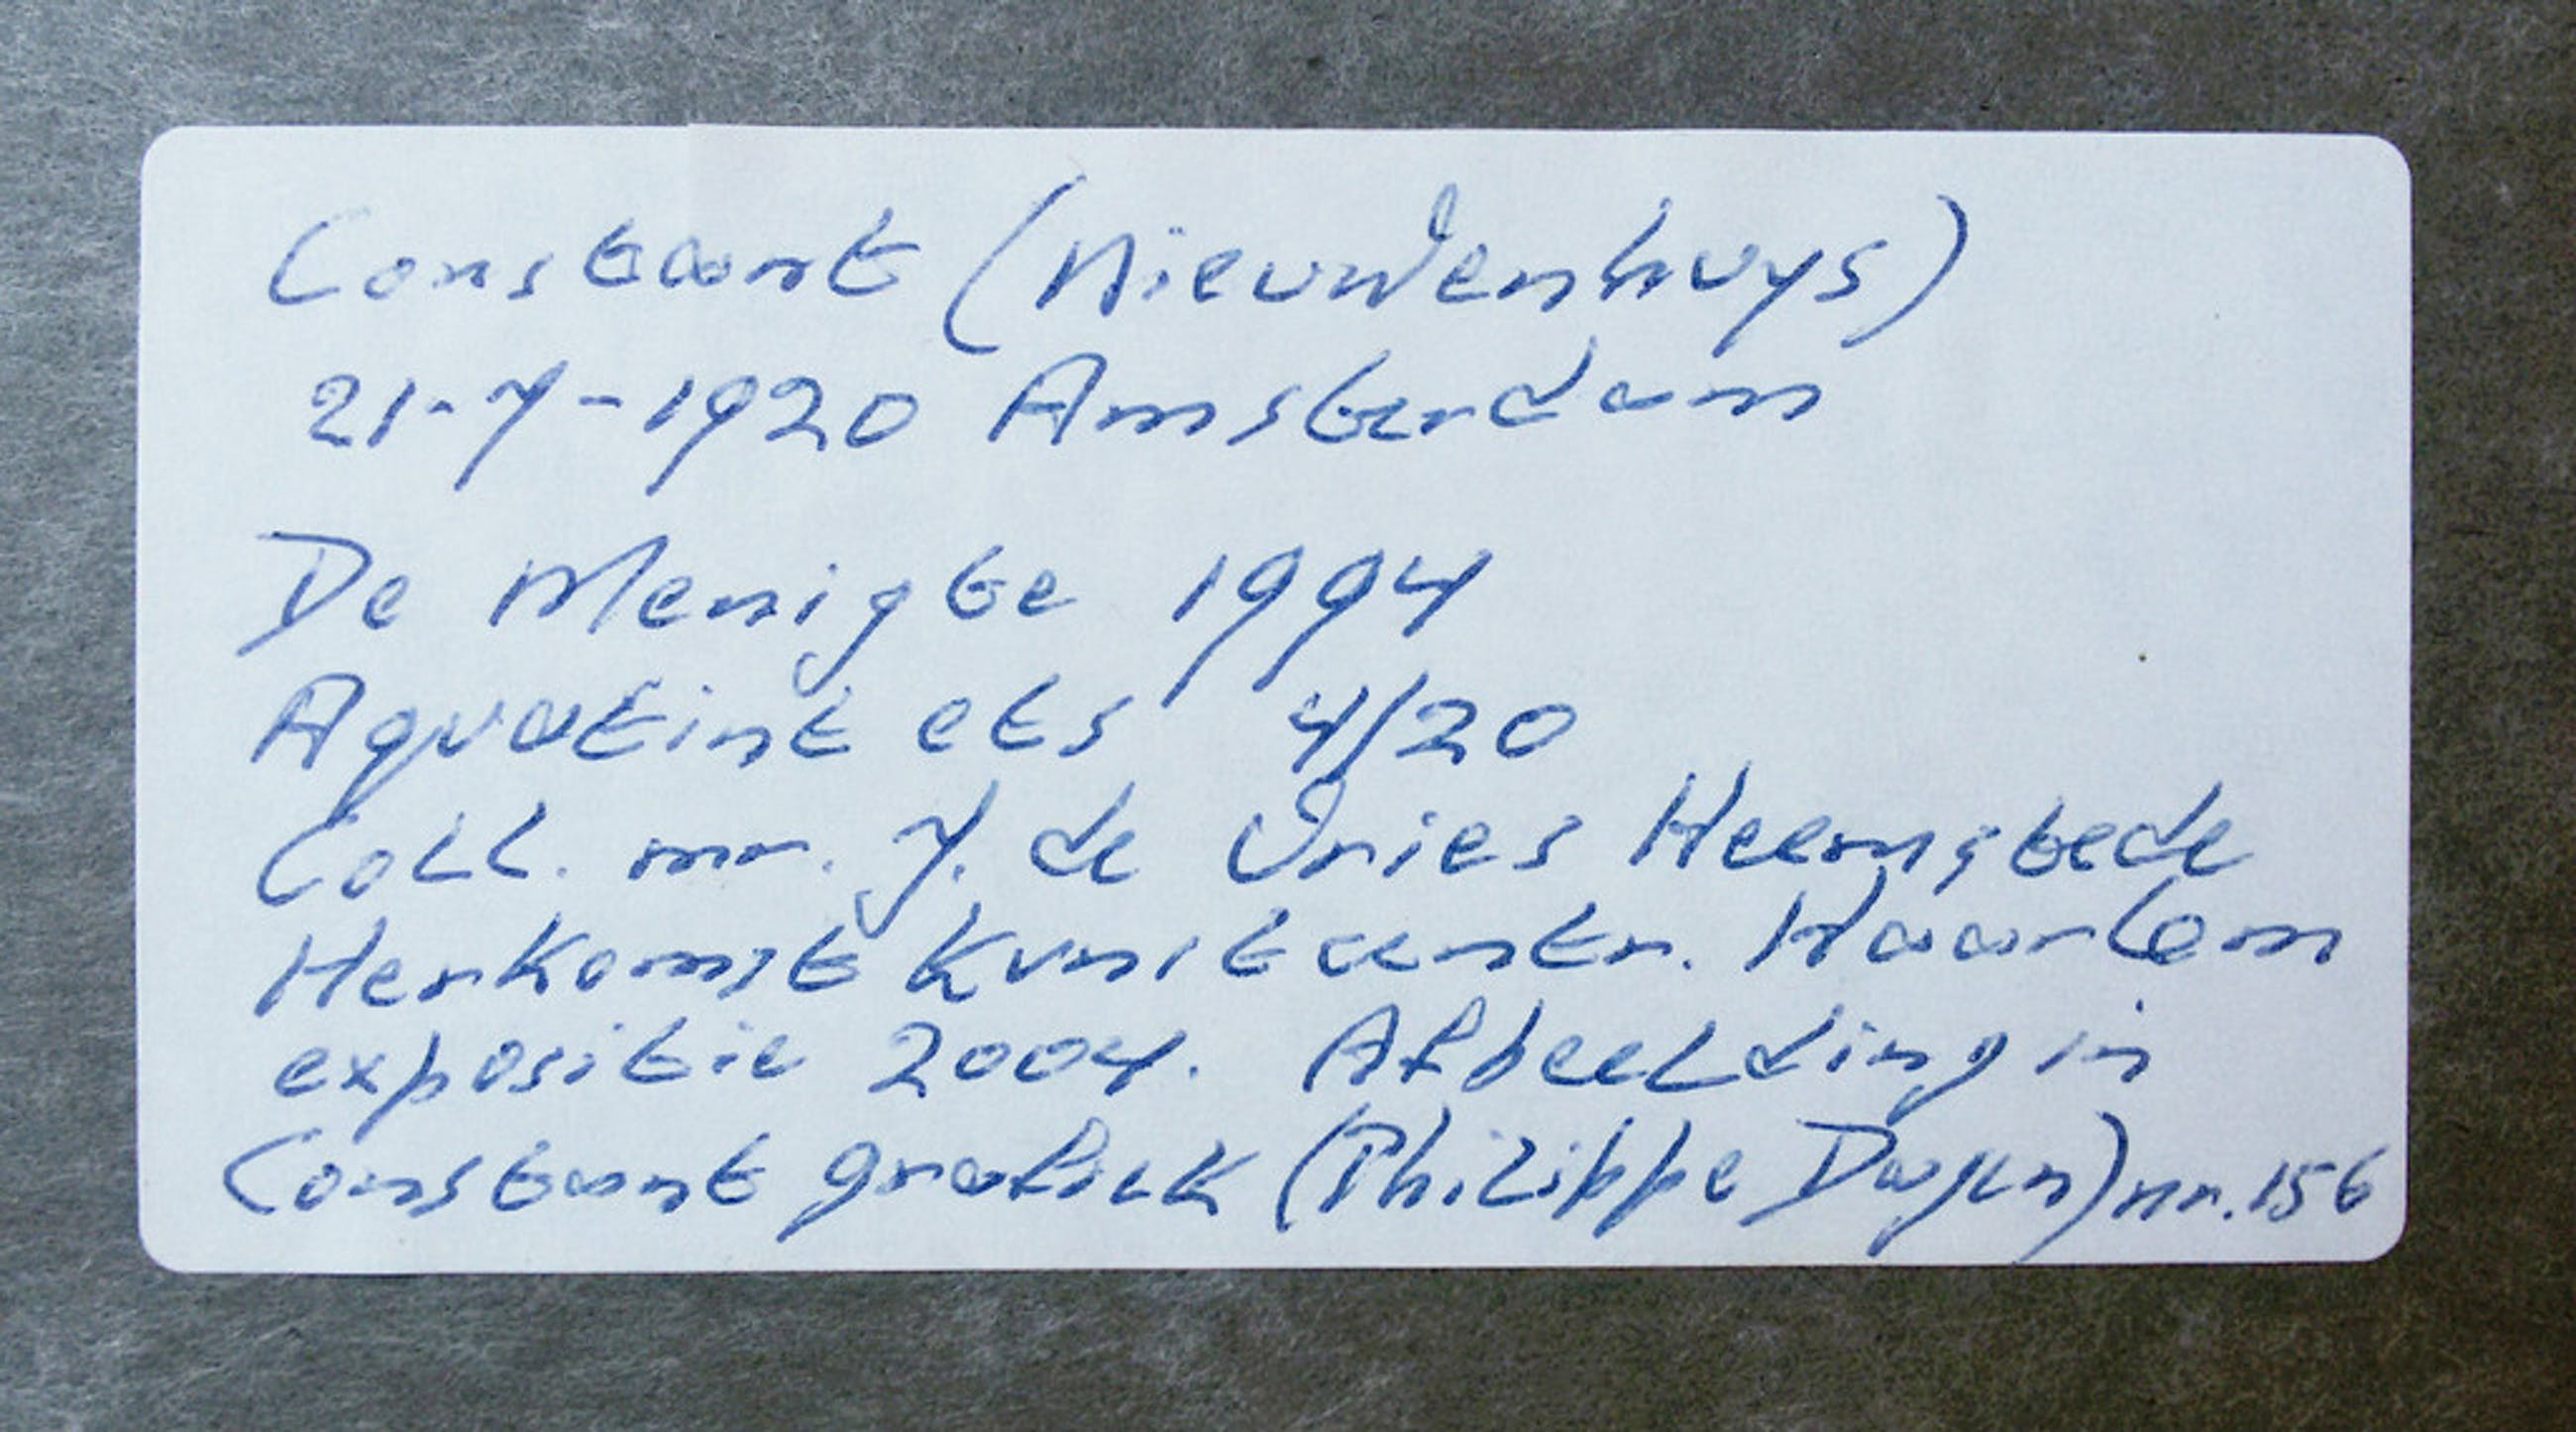 Constant (Nieuwenhuys)
21-7-1920 Amsterdam
De Menigte 1994
Aquatint ets 4/20
Coll. mr. J. de Vries Heemstede
Herkomst Kunstcentr. Haarlem
expositie 2004. Afbeelding in
Constant grafiek (Philippe Dagen) nr. 156